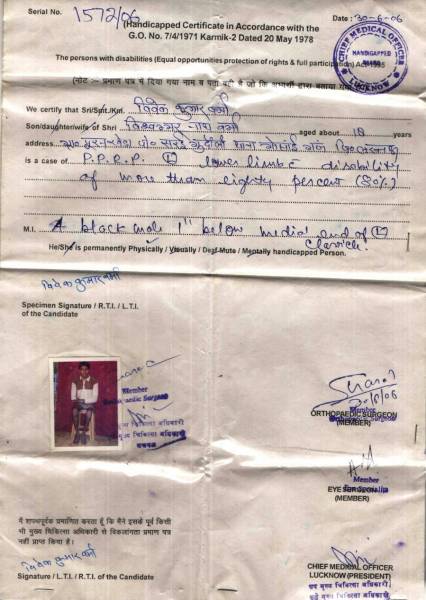 Serial No. 1572/06
Date : 30-6-06
(Handicapped Certificate in Accordance with the
G.O. No. 7/4/1971 Karmik-2 Dated 20 May 1978
CHIEF MEDICAL OFFICER
HANDICAPPED
LUCKNOW
The persons with disabilities (Equal opportunities protection of rights & full participation) Act 1995
(नोट :- प्रमाण पत्र में दिया गया नाम व पता वही है जो कि अभ्यर्थी द्वारा बताया गया
We certify that Sri/Smt./Km. विवेक कुमार वर्मा
Son/daughter/wife of Shri वर्मा aged about 18 years
address
is a case of P.P.R.P. (L) lower limb disability
of more than eighty percent (80%)
M.I. A black mole 1" below medial end of (L)
Clavicle.
He/She is permanently Physically / Visually / Deaf Mute / Mentally handicapped Person.
विवेक कुमार वर्मा
Specimen Signature / R.T.I. / L.T.I.
of the Candidate
Member
Orthopaedic Surgeon
मुख्य चिकित्सा अधिकारी
लखनऊ
ORTHOPAEDIC SURGEON
(MEMBER)
Member
EYE SURGEON
(MEMBER)
मैं शपथपूर्वक प्रमाणित करता हूँ कि मैंने इसके पूर्व किसी
भी मुख्य चिकित्सा अधिकारी से विकलांगता प्रमाण पत्र
नहीं प्राप्त किया है।
विवेक कुमार वर्मा
Signature / L.T.I. / R.T.I. of the Candidate
CHIEF MEDICAL OFFICER
LUCKNOW (PRESIDENT)
मुख्य चिकित्सा अधिकारी